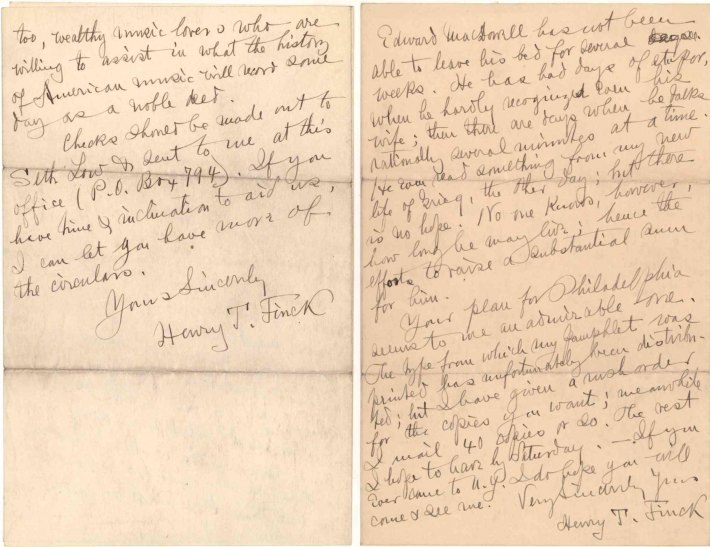 too, wealthy music lovers who are
willing to assist in what the history
of American music will record some
day as a noble deed.
Checks should be made out to
Seth Low & sent to me at this
office (P.O. Box 794). If you
have time & inclination to aid us,
I can let you have more of
the circulars.
Yours Sincerely
Henry T. Finck
Edward MacDowell has not been
able to leave his bed for several
weeks. He has had days of stupor,
when he hardly recognized even his
wife; then there are days when he talks
rationally several minutes at a time.
He even read something from my new
life of Grieg, the other day; but there
is no hope. No one knows, however,
how long he may live; hence the
efforts to raise a substantial sum
for him.
Your plan for Philadelphia
seems to me an admirable one.
The type from which my pamphlet was
printed has unfortunately been distribu-
ted; but I have given a rush order
for the copies you want; meanwhile
I mail 40 copies or so. The rest
I hope to have by Saturday. — If you
ever come to N.Y. I do hope you will
come & see me. Very Sincerely Yours
Henry T. Finck